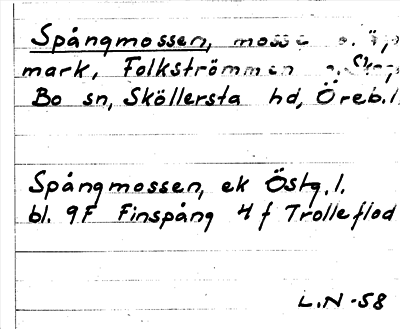 Spångmossen, mosse
mark, Folkströmmen
Bo sn, Sköllersta hd, Öreb.l
Spångmossen, ek Östg.l.
bl. 9F Finspång 4f Trolleflod
L.N -58